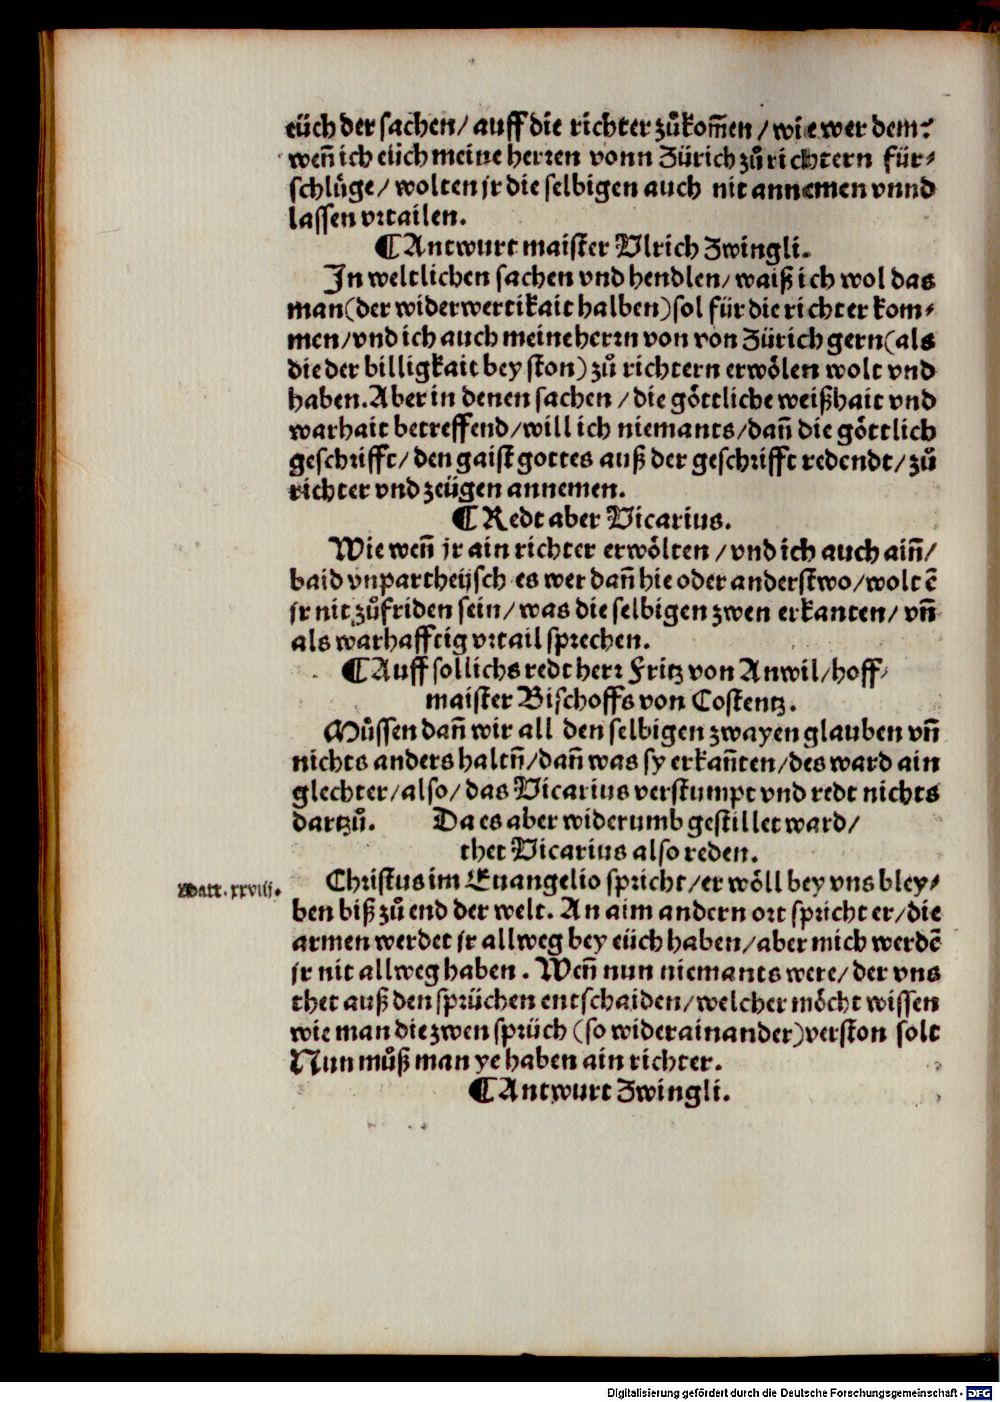 eüch der sachen/ auff die richter zuͦkom̃en/ wie wer dem?
wen̄ ich eüch meine herren vonn Zürich zuͦ richtern für⸗
schlüge/ wolten jr die selbigen auch nit annemen vnnd
lassen vrtailen.
¶Antwurt maister Vlrich Zwingli.
In weltlichen sachen vnd hendlen/ waiß ich wol das
man(der widerwertikait halben)sol für die richter kom⸗
men/ vnd ich auch meine herrn von von Zürich gern(als
die der billigkait bey ston) zuͦ richtern erwölen wolt vnd
haben. Aber in denen sachen / die göttliche weißhait vnd
warhait betreffend/ will ich niemants/ dan̄ die göttlich
geschrifft/ den gaist gottes auß der geschrifft redendt/ zuͦ
richter vnd zeügen annemen.
¶Redt aber Vicarius.
Wie wen̄ jr ain richter erwölten / vnd ich auch ain̄/
baid vnpartheijsch es wer dan̄ hie oder anderstwo/ woltē
jr nit zuͦfriden sein/ was die selbigen zwen erkanten/ vn̄
als warhafftig vrtail sprechen.
¶Auff sollichs redt herr Fritz von Anwil/ hoff⸗
maister Bischoffs von Costentz.
Muͦssen dan̄ wir all den selbigen zwayen glauben vn̄
nichts anders haltn̄/ dan̄ was sy erkan̄ten/ des ward ain
glechter/ also/ das Vicarius verstumpt vnd redt nichts
dartzuͦ. Da es aber widerumb gestillet ward/
thet Vicarius also reden.
Matt. xxviij. Christus im Euangelio spricht/ er wöll bey vns bley⸗
ben biß zuͦ end der welt. An aim andern ort spricht er/ die
armen werdet jr allweg bey eüch haben/ aber mich werdē
jr nit allweg haben. Wen̄ nun niemants were/ der vns
thet auß den sprüchen entschaiden/ welcher möcht wissen
wie man die zwen sprüch (so wider ainander)verston solt
Nun muͦß man ye haben ain richter.
¶Antwurt Zwingli.
Digitalisierung gefördert durch die Deutsche Forschungsgemeinschaft - DFG